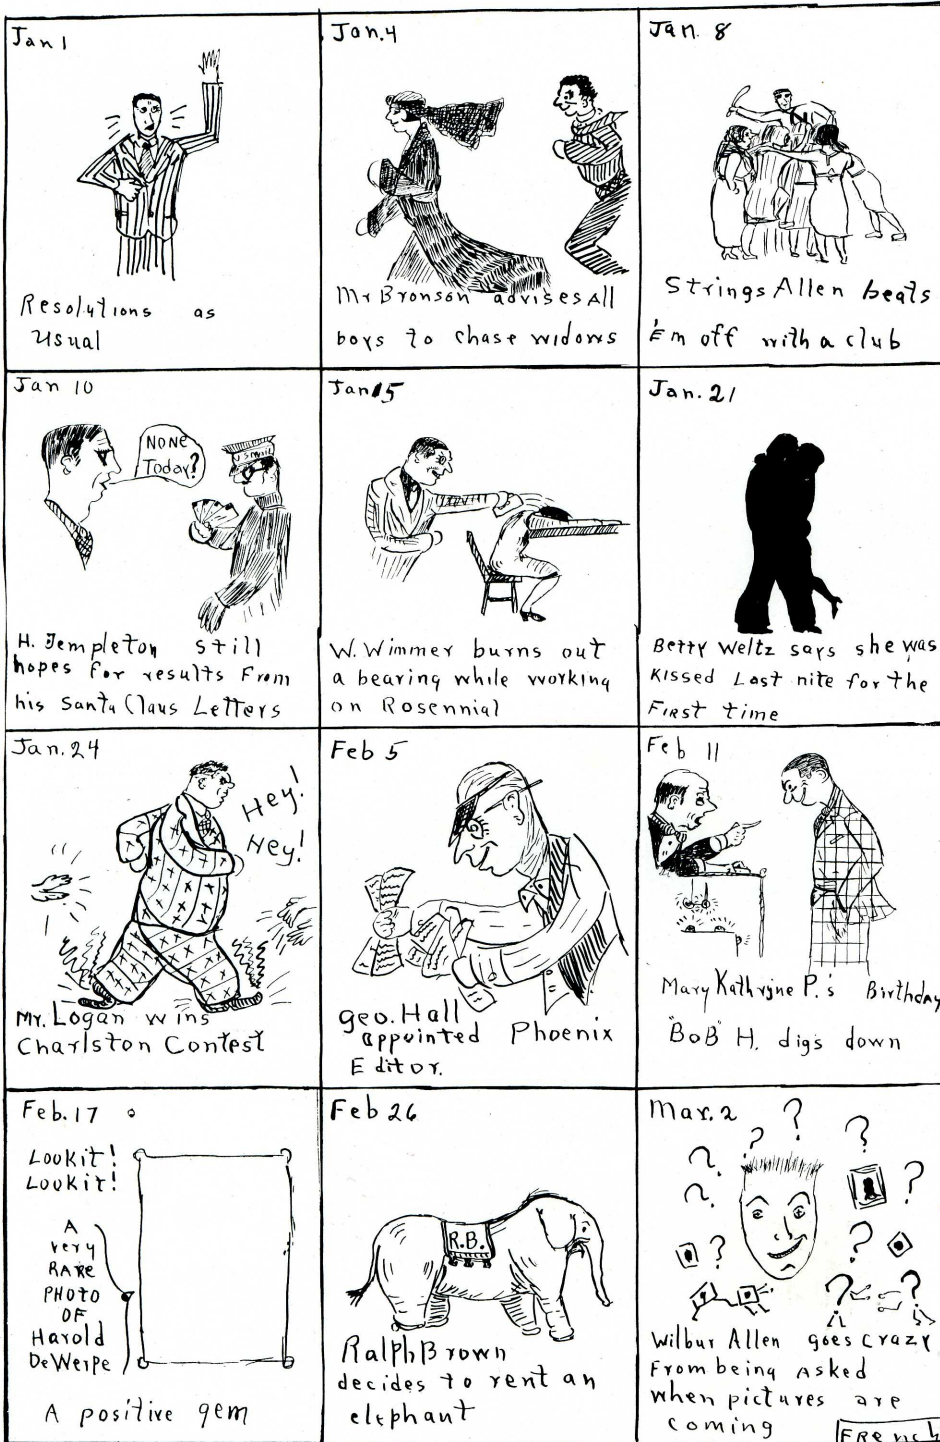 Jan 1
Resolutions as
Usual
Jan. 4
Mr Bronson advises All
boys to chase widows
Jan. 8
Strings Allen beats
'Em off with a club
Jan 10
None
Today?
U S MAIL
H. Templeton still
hopes for results From
his Santa Claus Letters
Jan 15
W. Wimmer burns out
a bearing while working
on Rosennial
Jan. 21
Betty Weltz says she was
Kissed Last nite for the
First time
Jan. 24
Hey!
Hey!
Mr. Logan wins
Charlston Contest
Feb 5
Geo. Hall
appointed Phoenix
Editor.
Feb 11
Mary Kathryne P.'s Birthday
"BoB" H. digs down
Feb. 17
Lookit!
Lookit!
A
very
RARE
PHOTO
OF
Harold
DeWerpe
A positive gem
Feb 26
R.B.
Ralph Brown
decides to rent an
elephant
Mar. 2
Wilbur Allen goes crazy
From being asked
when pictures are
coming
FRENCH